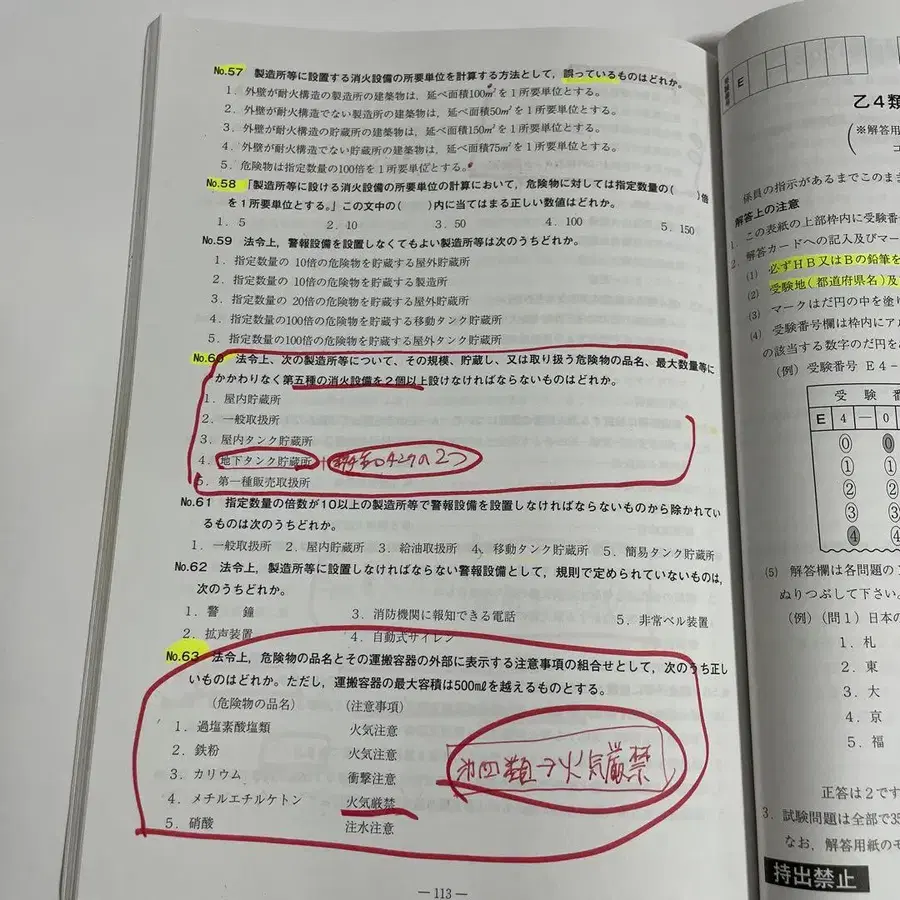 No.57 製造所等に設置する消火設備の所要単位を計算する方法として，誤っているものはどれか。
1．外壁が耐火構造の製造所の建築物は，延べ面積100㎡を1所要単位とする。
2．外壁が耐火構造でない製造所の建築物は，延べ面積50㎡を1所要単位とする。
3．外壁が耐火構造の貯蔵所の建築物は，延べ面積150㎡を1所要単位とする。
4．外壁が耐火構造でない貯蔵所の建築物は，延べ面積75㎡を1所要単位とする。
5．危険物は指定数量の100倍を1所要単位とする。
No.58 「製造所等に設ける消火設備の所要単位の計算において，危険物に対しては指定数量の(　　)倍
を1所要単位とする。」この文中の(　　)内に当てはまる正しい数値はどれか。
1．5　2．10　3．50　4．100　5．150
No.59 法令上，警報設備を設置しなくてもよい製造所等は次のうちどれか。
1．指定数量の 10倍の危険物を貯蔵する屋外貯蔵所
2．指定数量の 10倍の危険物を貯蔵する製造所
3．指定数量の 20倍の危険物を貯蔵する屋外貯蔵所
4．指定数量の100倍の危険物を貯蔵する移動タンク貯蔵所
5．指定数量の100倍の危険物を貯蔵する屋外タンク貯蔵所
No.60 法令上、次の製造所等について、その規模、貯蔵し、又は取り扱う危険物の品名、最大数量等に
かかわりなく第五種の消火設備を2個以上設けなければならないものはどれか。
1．屋内貯蔵所
2．一般取扱所
3．屋内タンク貯蔵所
4．地下タンク貯蔵所
5．第一種販売取扱所
No.61 指定数量の倍数が10以上の製造所等で警報設備を設置しなければならないものから除かれてい
るものは次のうちどれか。
1．一般取扱所 2．屋内貯蔵所 3．給油取扱所 4．移動タンク貯蔵所 5．簡易タンク貯蔵所
No.62 法令上，製造所等に設置しなければならない警報設備として，規則で定められていないものは，
次のうちどれか。
1．警　鐘　3．消防機関に報知できる電話　5．非常ベル装置
2．拡声装置　4．自動式サイレン
No.63 法令上，危険物の品名とその運搬容器の外部に表示する注意事項の組合せとして，次のうち正し
いものはどれか。ただし，運搬容器の最大容積は500mℓを越えるものとする。
(危険物の品名)　(注意事項)
1．過塩素酸塩類　火気注意
2．鉄粉　火気注意
3．カリウム　衝撃注意
第四類→火気厳禁
4．メチルエチルケトン　火気厳禁
5．硝酸　注水注意
— 113 —
E
乙4類
(※解答用
係員の指示があるまでこのまま
解答上の注意
1．この表紙の上部枠内に受験番号
2．解答カードへの記入及びマー
(1) 必ずHB又はBの鉛筆を
(2) 受験地(都道府県名)及
(3) マークはだ円の中を塗り
(4) 受験番号欄は枠内にア
の該当する数字のだ円を
(例) 受験番号 E4-
受　験　番
E 4 — 0
0 0
1 1
2 2
3 3
4 4
(5) 解答欄は各問題の
ぬりつぶして下さい。
(例)(問1) 日本の
1．札
2．東
3．大
4．京
5．福
正答は2です
3．試験問題は全部で35
なお，解答用紙の
持出禁止